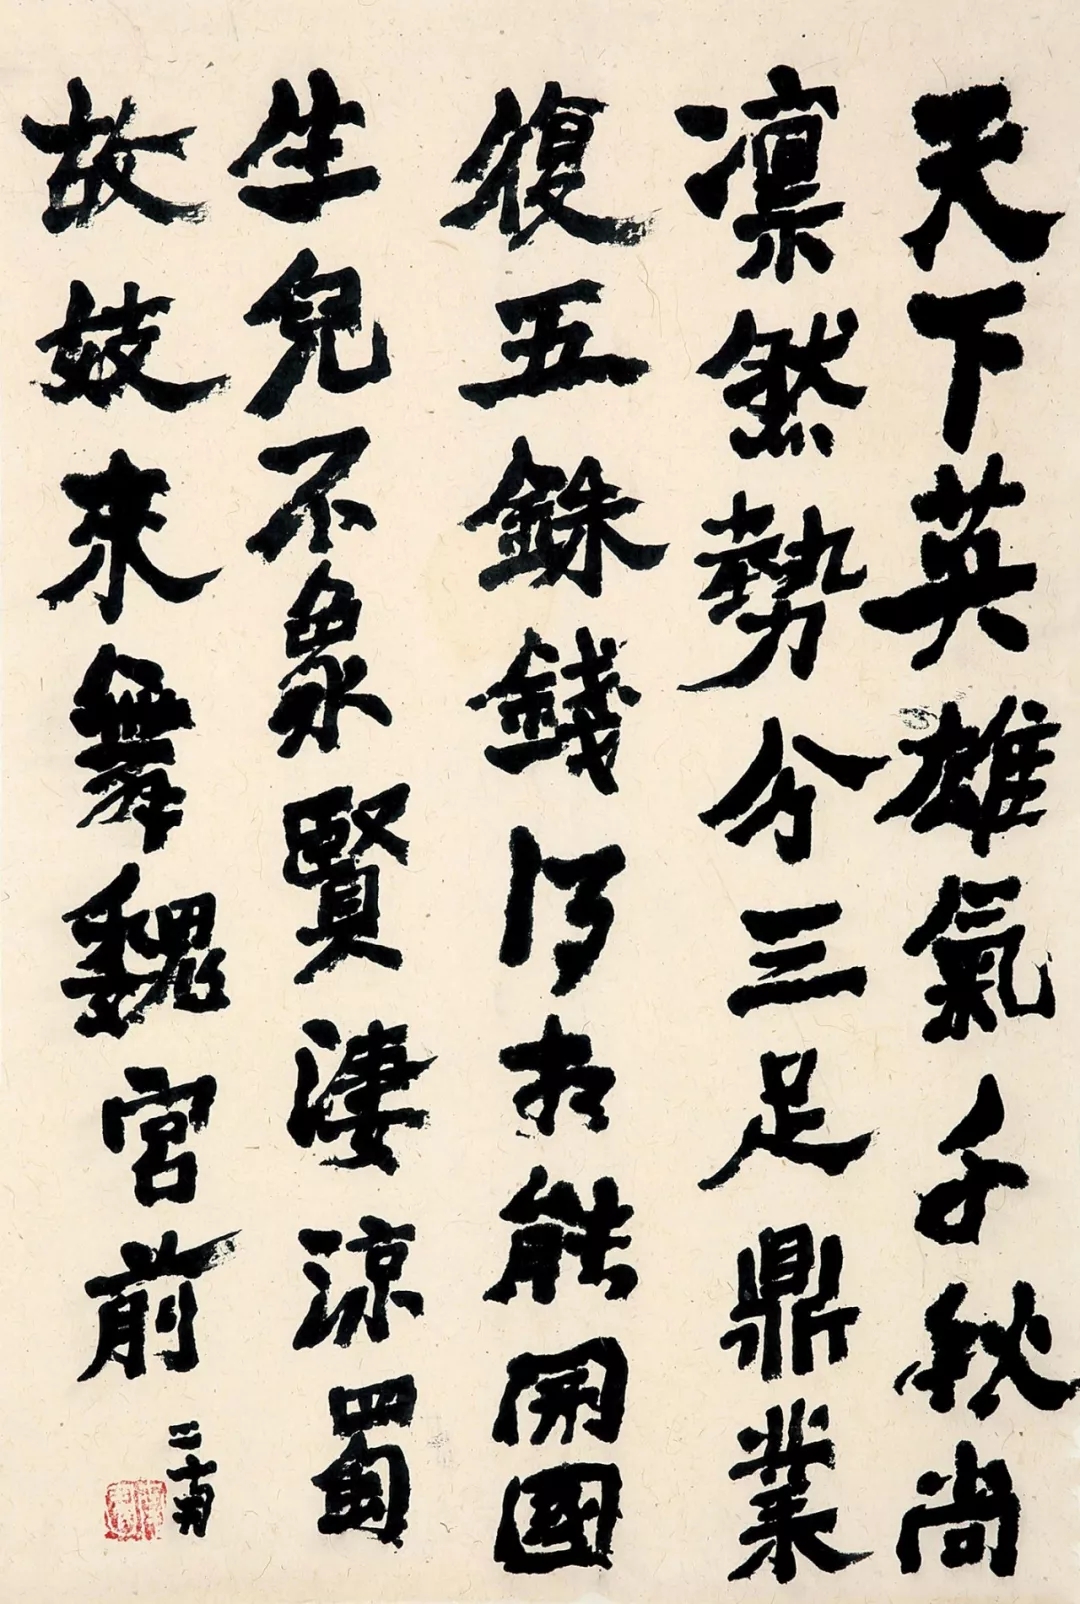 天下英雄氣千秋尚
凛然勢分三足鼎業
復五銖錢得相能開國
生兒不象賢淒涼蜀
故妓來舞魏宮前
二南